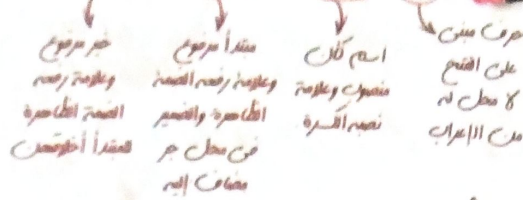 حرف مبنى
على الفتح
لا محل له
من الإعراب
اسم كأن
منصوب وعلامة
نصبه الكسرة
مبتدأ مرفوع
وعلامة رفعه الضمة
الظاهرة والضمير
فى محل جر
مضاف إليه
خبر مرفوع
وعلامة رفعه
الضمة الظاهرة
للمبتدأ